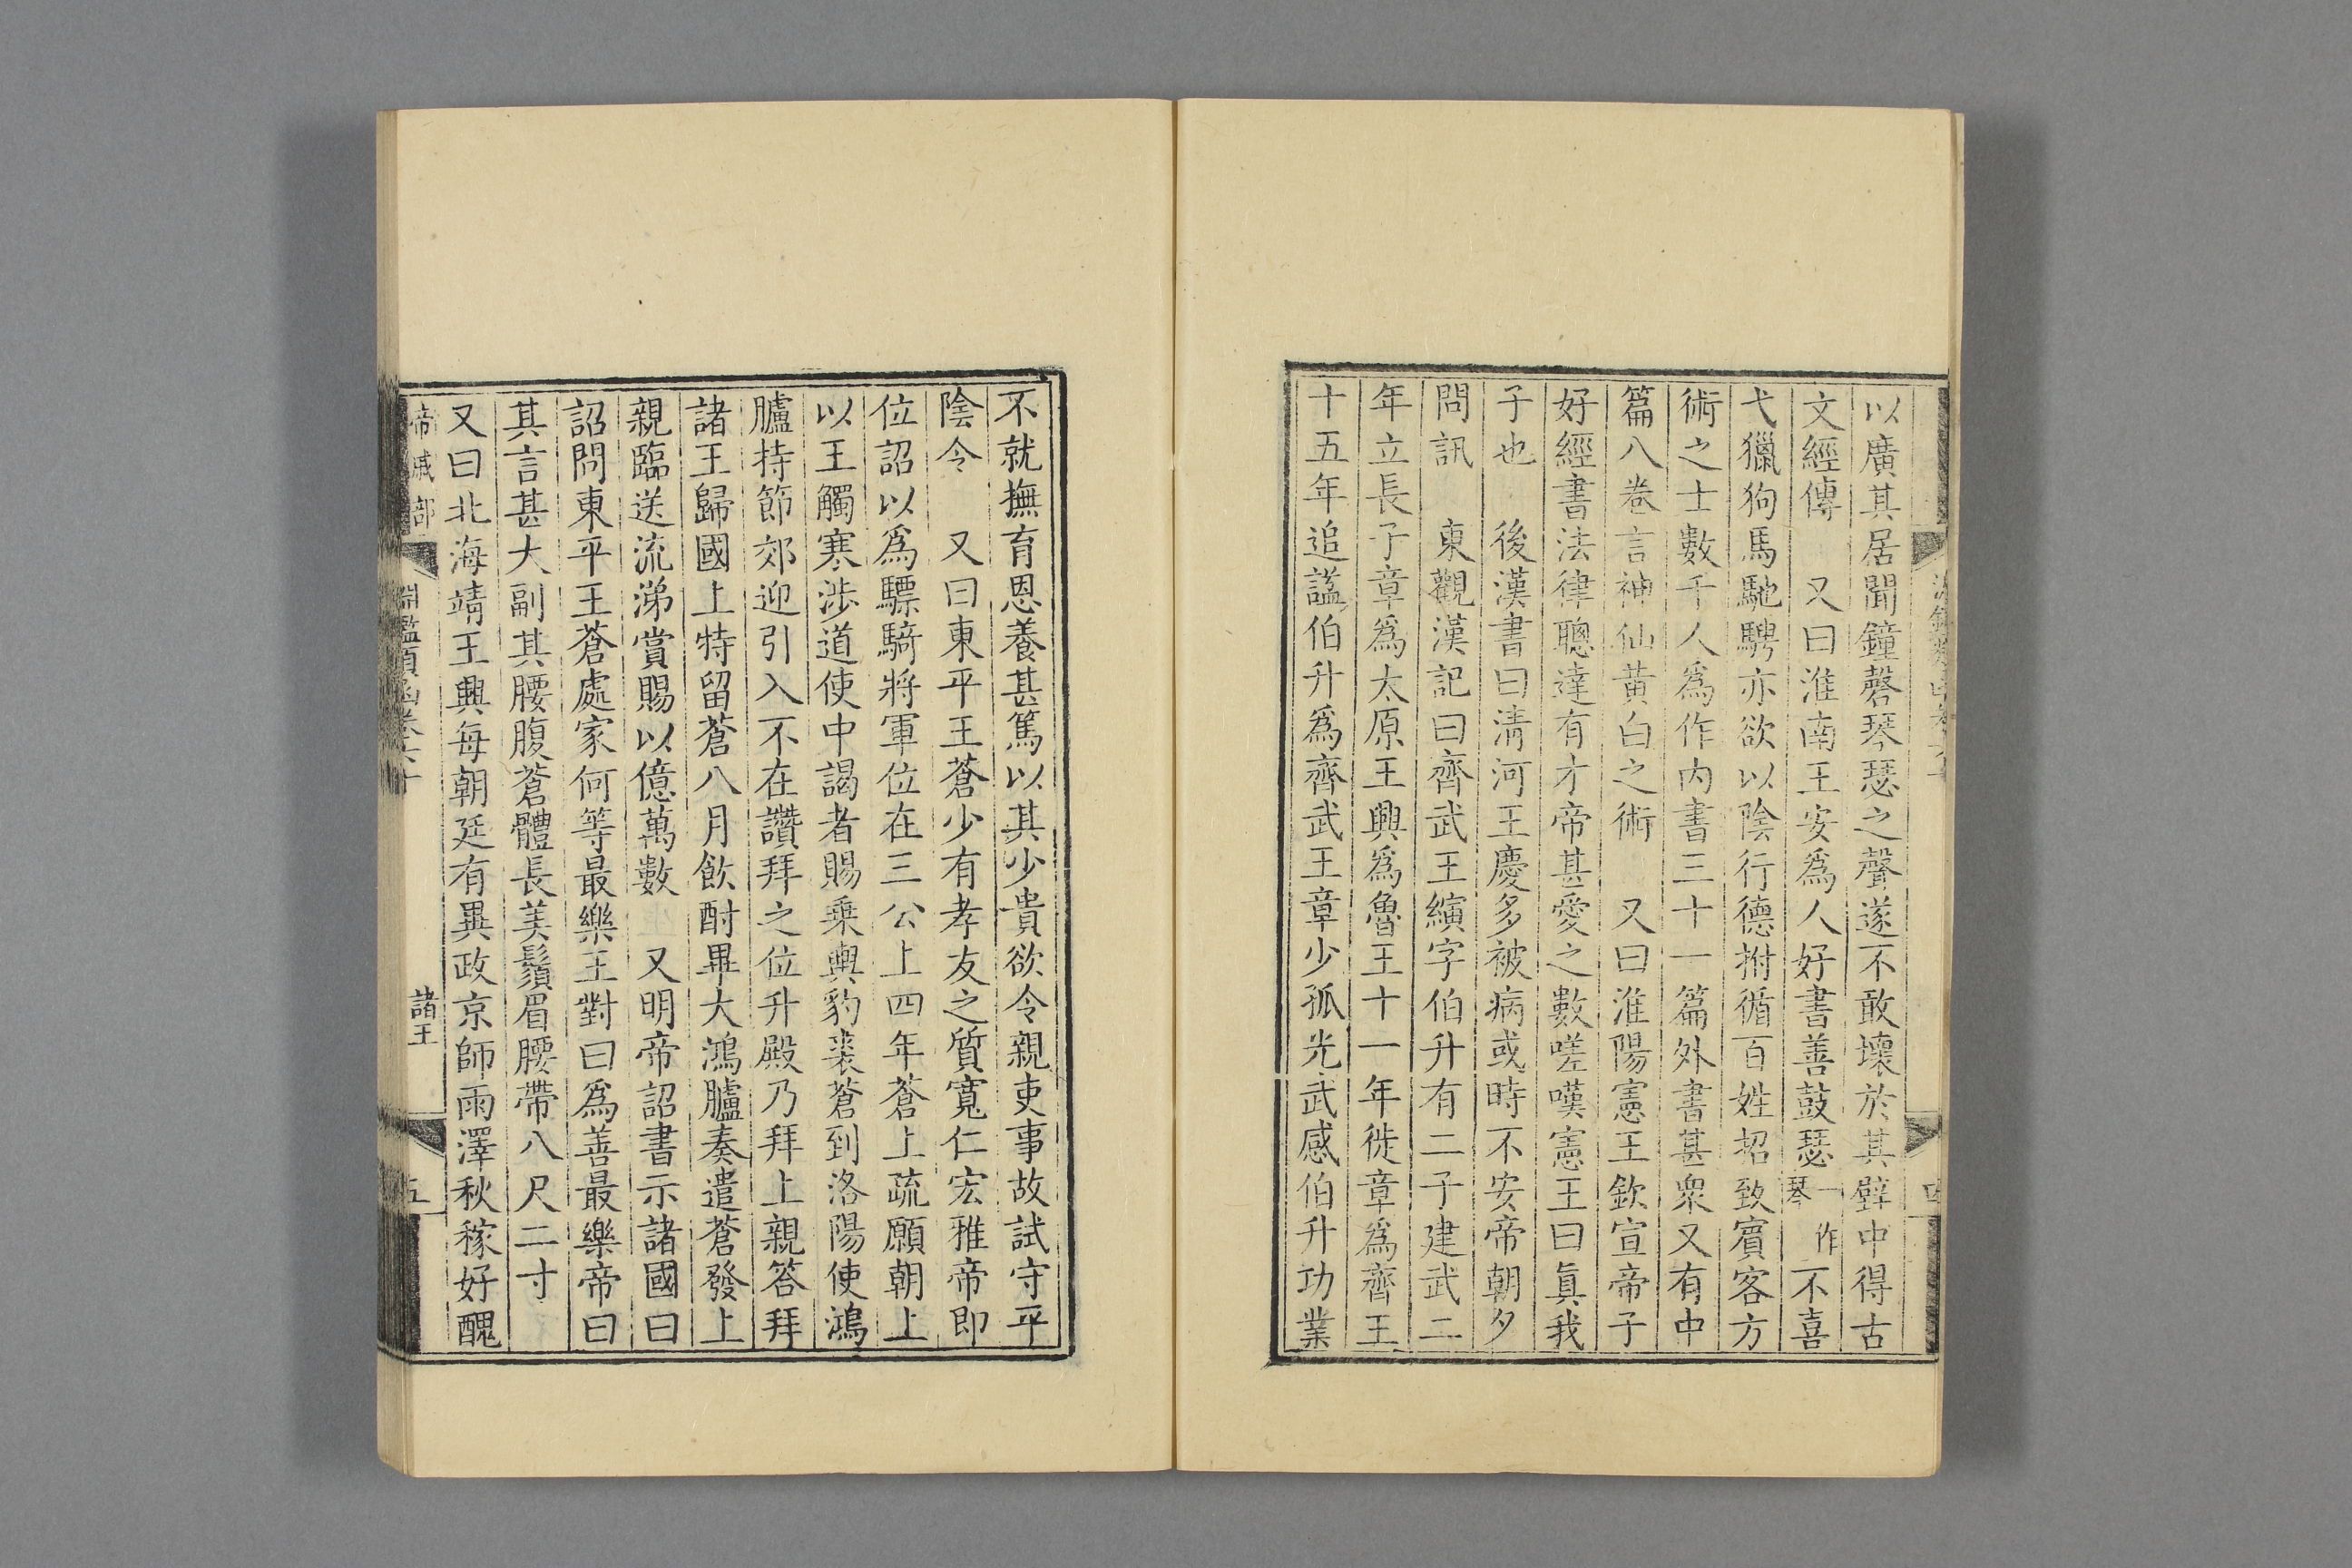 以廣其居聞鐘磬琴瑟之聲遂不敢壞於其壁中得古
文經傳　又曰淮南王安爲人好書善鼓瑟一作琴不喜
弋獵狗馬馳騁亦欲以陰行德拊循百姓招致賓客方
術之士數千人爲作内書三十一篇外書甚衆又有中
篇八卷言神仙黄白之術　又曰淮陽憲王欽宣帝子
好經書法律聰達有才帝甚愛之數嗟嘆憲王曰眞我
子也　後漢書曰淸河王慶多被病或時不安帝朝夕
問訊　東觀漢記曰齊武王縯字伯升有二子建武二
年立長子章爲太原王興爲魯王十一年徙章爲齊王
十五年追謚伯升爲齊武王章少孤光武感伯升功業
不就撫育恩養甚篤以其少貴欲令親吏事故試守平
陰令　又曰東平王蒼少有孝友之質寬仁宏雅帝即
位詔以爲驃騎將軍位在三公上四年蒼上疏願朝上
以王觸寒涉道使中謁者賜乘輿豹裘蒼到洛陽使鴻
臚持節郊迎引入不在讚拜之位升殿乃拜上親答拜
諸王歸國上特留蒼八月飲酎畢大鴻臚奏遣蒼發上
親臨送流涕賞賜以億萬數　又明帝詔書示諸國曰
詔問東平王蒼處家何等最樂王對曰爲善最樂帝曰
其言甚大副其腰腹蒼體長美鬚眉腰帶八尺二寸
又曰北海靖王興每朝廷有異政京師雨澤秋稼好醜
帝戚部　淵鑑類函卷六十　諸王　五